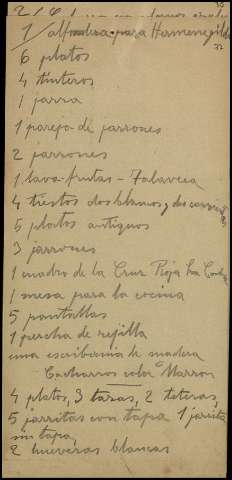 2/6
1/ alfombra para Hermenegild
6 platos
4 tinteros
1 jarra
1 pareja de jarrones
2 jarrones
1 lava-frutas - Talavera
4 tiestos dos blancos y dos
5 platos antiguos
3 jarrones
1 cuadro de la Cruz Roja La
1 mesa para la cocina
5 pantallas
1 percha de rejilla
una escribania de madera
Cacharros color Marron
4 platos, 3 tazas, 2 teteras,
5 jarritas con tapa 1 jarrita
sin tapa,
2 hueveras blancas